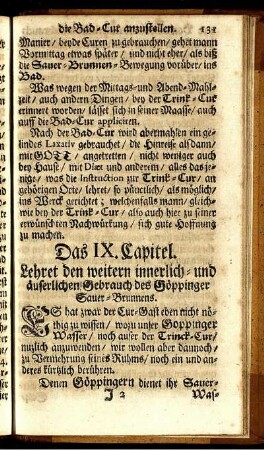 die Bad-Cur anzustellen. 131
Manier / beyde Curen zu gebrauchen / gehet mann
Vormittag etwas später / und nicht eher / als biß
die Sauer-Brunnen-Bewegung vorüber / ins
Bad.
Was wegen der Mittags- und Abend-Mahl-
Zeit / auch andern Dingen / bey der Trinck-Cur
erinnert worden / lässet sich in seiner Maasse / auch
auff die Bad-Cur appliciren.
Nach der Bad-Cur wird abermahlen ein ge-
lindes Laxativ gebrauchet / die Hinreise als dann /
mit GOTT / angetretten / nicht weniger auch
bey Hauß / mit Diæt und anderem / alles das je-
nige / was die Instruction zur Trink-Cur / an
gehörigen Orte / lehret / so pünctlich / als möglich /
ins Werck gerichtet ; welchenfalls mann / gleich-
wie bey der Trink-Cur / also auch hier zu seiner
erwünschten Nachwürkung / sich gute Hoffnung
zu machen.
Das IX. Capitel.
Lehret den weitern innerlich- und
äuserlichen Gebrauch des Göppinger
Sauer-Brunnens.
ES hat zwar der Cur-Gast eben nicht nö-
thig zu wissen / wozu unser Göppinger
Wasser / noch auser der Trinck-Cur /
nuzlich anzuwenden / wir wollen aber dannoch /
zu Vermehrung seines Ruhms / noch ein und an-
deres kürtzlich berühren.
Denen Göppingern dienet ihr Sauer-
J 2 Was-